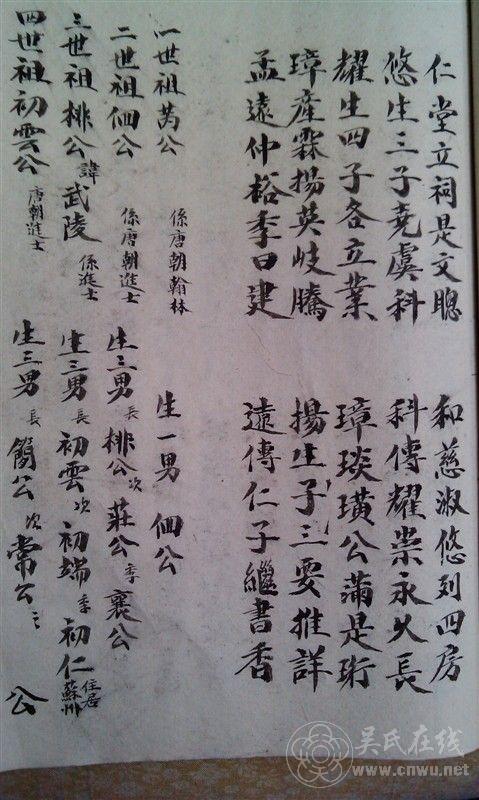 仁堂立祠是文聰 和慈淑悠列四房
悠生三子堯虞科 科傳耀崇永久長
耀生四子各立業 璋琰璜公蒲是珩
璋產霖揚英岐騰 揚生子三要推詳
孟遠仲裕季曰建 遠傳仁子繼書香
一世祖芮公 係唐朝翰林 生一男 佃公
二世祖佃公 係唐朝進士 生三男 長 桃公 次 莊公 季 襄公
三世祖桃公 諱武陵 係進士 生三男 長 初雲 次 初端 季 初仁 住居蘇州
四世祖初雲公 唐朝進士 生三男 長 簡公 次 常公 三 公
吴氏在线
www.cnwu.net